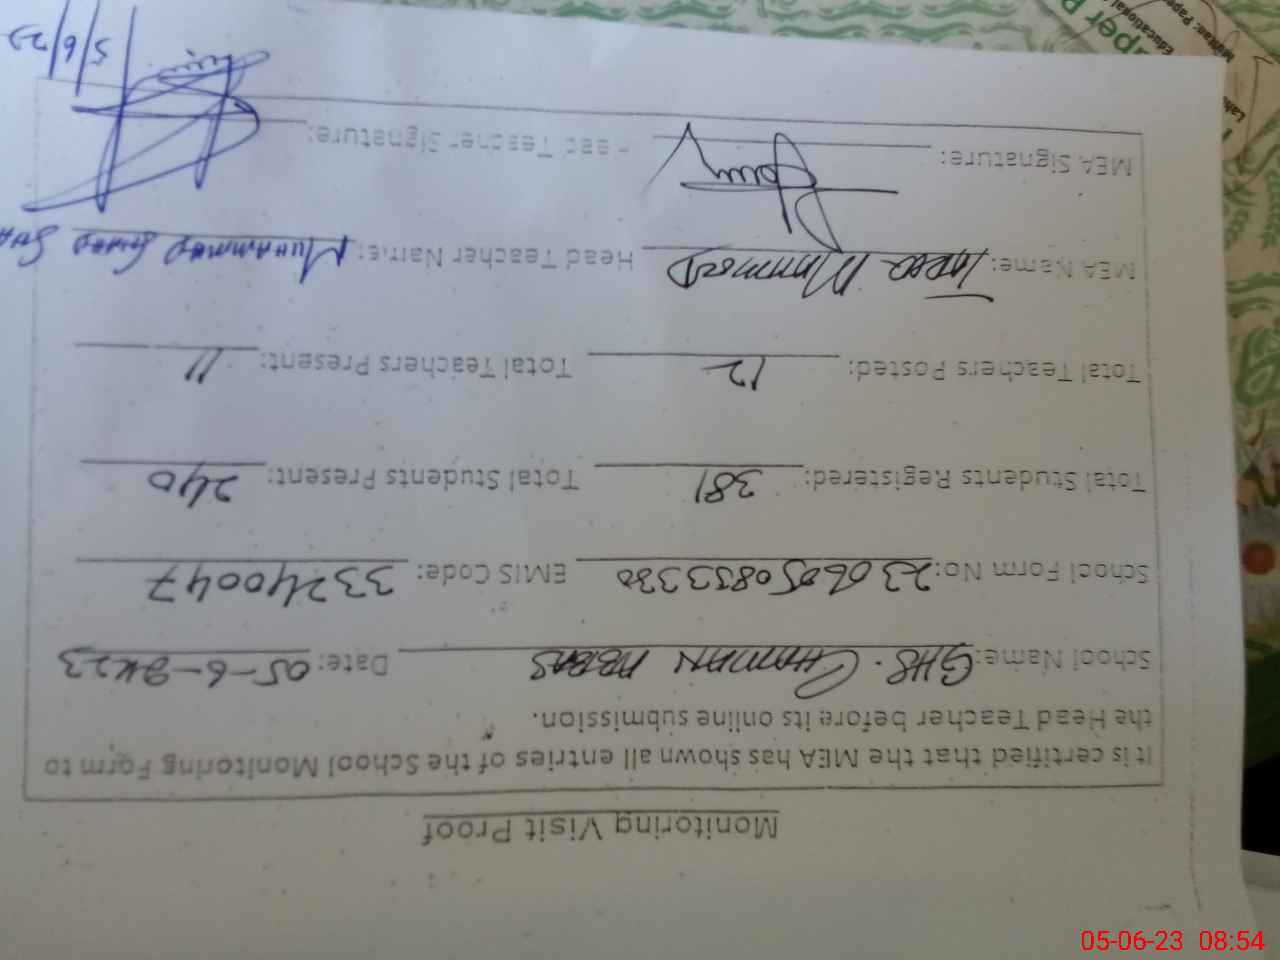 Monitoring Visit Proof
It is certified that the MEA has shown all entries of the School Monitoring Form to
the Head Teacher before its online submission.
School Name: GHS. CHAMAN ABBAS Date: 05-6-2K23
School Form No: EMIS Code: 33240047
Total Students Registered: 381 Total Students Present: 240
Total Teachers Posted: 12 Total Teachers Present: 11
MEA Name: TARIQ MAHMOOD Head Teacher Name: MUHAMMAD
MEA Signature: Head Teacher Signature:
5/6/23
05-06-23 08:54